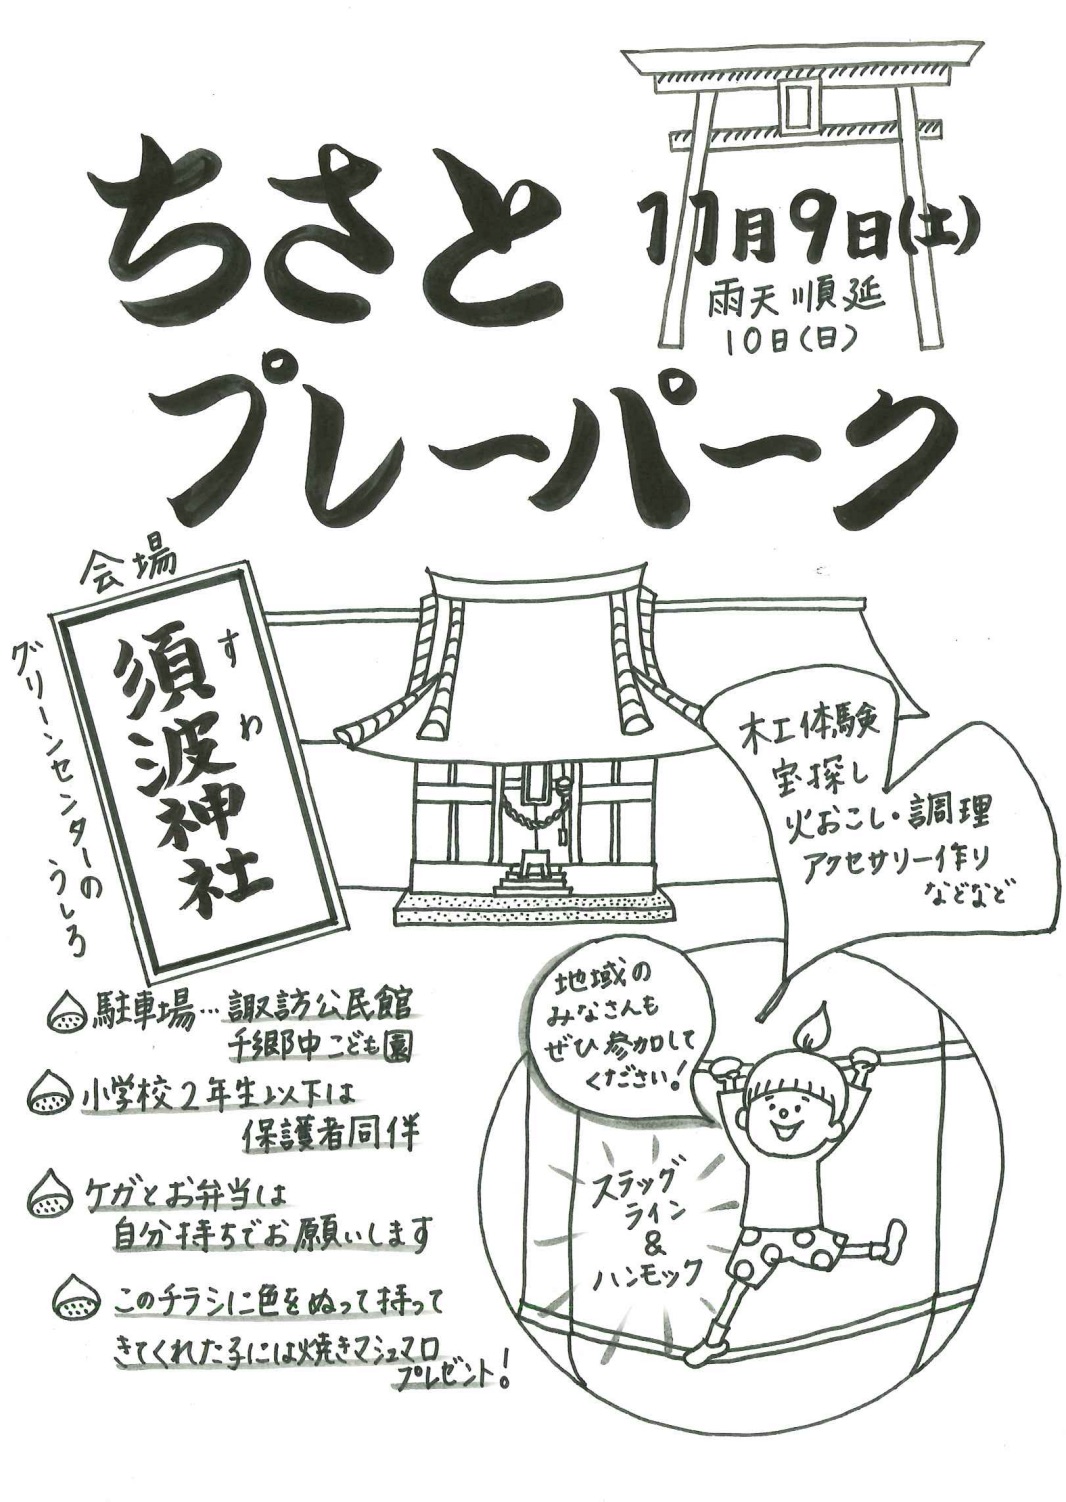 ちさと
プレーパーク
11月9日(土)
雨天順延
10日(日)
会場
須波神社
すわ
グリーンセンターの
うしろ
木工体験
宝探し
火おこし・調理
アクセサリー作り
などなど
地域の
みなさんも
ぜひ参加して
ください!
駐車場…諏訪公民館
千郷中こども園
小学校2年生以下は
保護者同伴
ケガとお弁当は
自分持ちでお願いします
このチラシに色をぬって持って
きてくれた子には焼きマシュマロ
プレゼント!
スラッグ
ライン
&
ハンモック